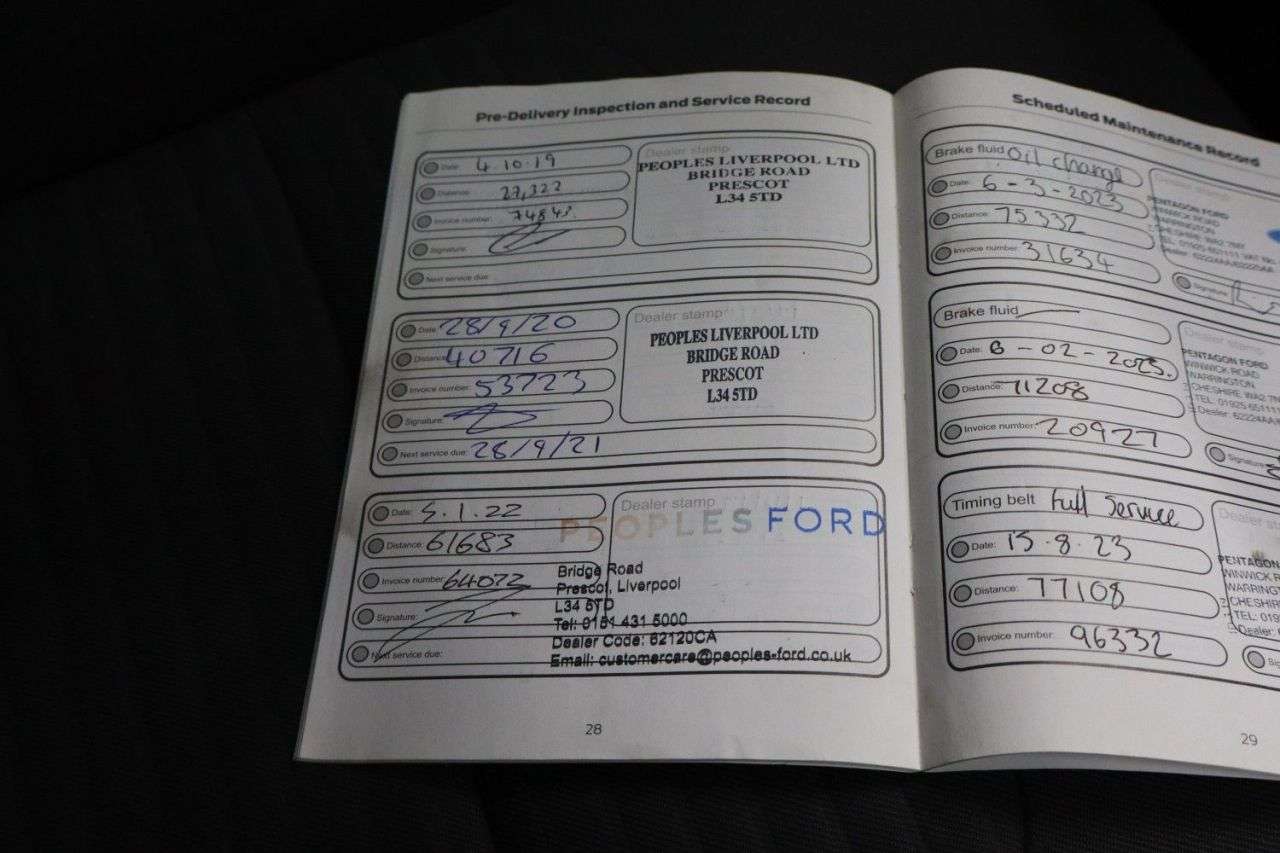 Pre-Delivery Inspection and Service Record
Date: 4.10.19
Distance: 27,322
Invoice number: 74843
Signature:
Next service due:
Dealer stamp
PEOPLES LIVERPOOL LTD
BRIDGE ROAD
PRESCOT
L34 5TD
Date: 28/9/20
Distance: 40716
Invoice number: 53723
Signature:
Next service due: 28/9/21
Dealer stamp
PEOPLES LIVERPOOL LTD
BRIDGE ROAD
PRESCOT
L34 5TD
Date: 5.1.22
Distance: 61683
Invoice number: 64072
Signature:
Next service due:
Dealer stamp
PEOPLES FORD
Bridge Road
Prescot, Liverpool
L34 5TD
Tel: 0151 431 5000
Dealer Code: 62120CA
Email: customercare@peoples-ford.co.uk
28
Scheduled Maintenance Record
Brake fluid Oil change
Date: 6-3-2023
Distance: 75332
Invoice number: 31634
PENTAGON FORD
WINWICK ROAD
WARRINGTON
CHESHIRE WA2 7NY
TEL. 01925 651111 VAT No.
Signature:
Brake fluid
Date: 6-02-2023.
Distance: 71208
Invoice number: 20927
Dealer stamp
PENTAGON FORD
WINWICK ROAD
WARRINGTON
CHESHIRE WA2 7N
TEL: 01925 65111
Dealer: 62224AA
Signature:
Timing belt Full Service
Date: 15.8.23
Distance: 77108
Invoice number: 96332
Dealer stamp
PENTAGON
WINWICK R
WARRING
CHESHIR
TEL: 01
Dealer
Sig
29